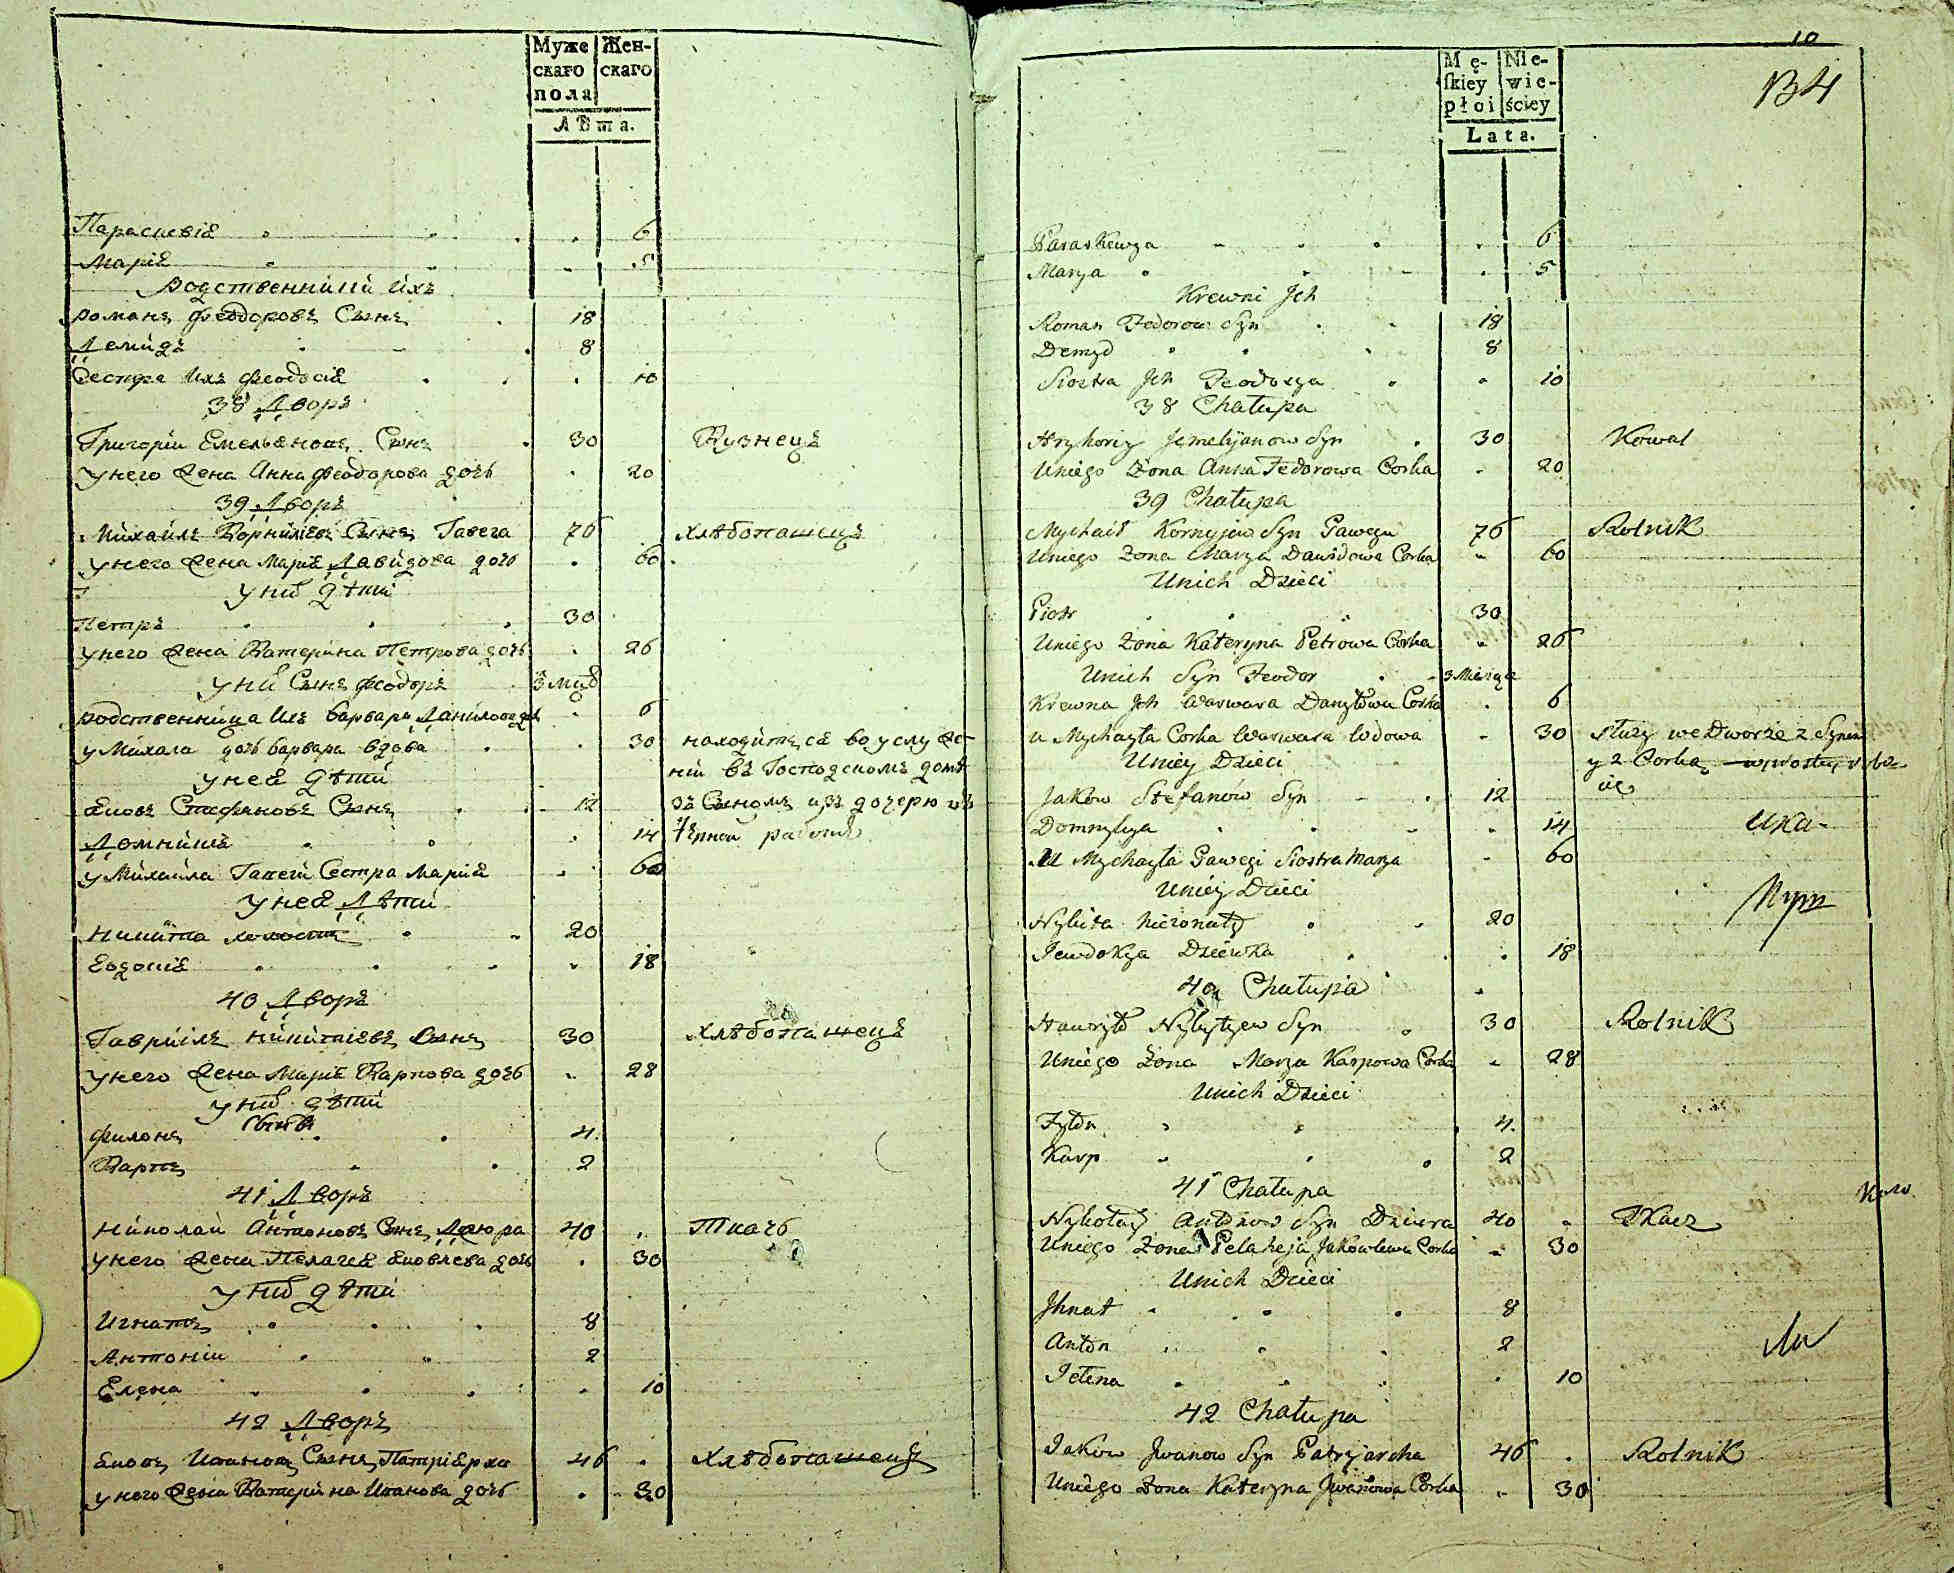 Муже Жен-
скаго скаго
пола
Лѣта.
Параскевіѧ 6
Маріѧ 5
родственники ихъ
романъ феодоровъ Сынъ 18
Демидъ 8
Сестра ихъ феодосіѧ 10
38 Дворъ
Григоріи Емельѧновъ Сынъ 30 Кузнецъ
у него жена Анна феодорова дочь 20
39 Дворъ
Михаилъ Корниліевъ Сынъ Гавега 76 хлѣбопашецъ
у него жена Маріѧ Давидова дочь 60
у них дѣти
Петръ 30
у него жена Катерина Петрова дочь 26
у них Сынъ феодоръ 3 мцѧ
родственница их варвара Данилова дч 6
у Михаила дочь варвара вдова 30 находитсѧ во услуже-
у неѧ дѣти ніи въ Господскомъ домѣ
Ѧковъ Стефановъ Сынъ 12 зъ Сыномъ изъ дочерю въ
Домникіѧ 14 чернои работѣ
у Михаила Гавеги Сестра Маріѧ 60
у неѧ Дѣти
Никита холостъ 20
Евдокіѧ 18
40 Дворъ
Гавриілъ Никитіевъ Сынъ 30 хлѣбопашецъ
у него жена Маріѧ Карпова дочь 28
у них дѣти
Сыны
филонъ 4
Карпъ 2
41 Дворъ
Николаи Антоновъ Сынъ Дзюра 40 Ткачь
у него жена Пелагеѧ Ѧковлева дочь 30
у них дѣти
Игнатъ 8
Антоніи 2
Елена 10
42 Дворъ
Ѧковъ Ивановъ Сынъ Патріѧрха 46 Хлѣбопашецъ
у него жена Катерина Иванова дочь 30
10
Mę- Nie-
ſkiey wie-
płci ściey
Lata.
134
Paraskewya 6
Marya 5
Krewni Jch
Roman Fedorow Syn 18
Demyd 8
Siostra Jch Feodosya 10
38 Chałupa
Hryhoriy Jemelijanow Syn 30 Kowal
Uniego Żona Anna Fedorowa Corka 20
39 Chałupa
Mychaił Kornyjow Syn Gawęga 76 Rolnik
Uniego Żona Marya Dawidowa Corka 60
Unich Dzieci
Piotr 30
Uniego Żona Kateryna Petrowa Corka 26
Unich Syn Feodor 3 Miesiące
Krewna Jch Warwara Danyłowa Corka 6
u Mychayła Corka Warwara wdowa 30 służy we Dworze z Synem
Uniey Dzieci y z Corką
Jakow Stefanów Syn 12
Domnykya 14
U Mychayła Gawęgi Siostra Marya 60
Uniey Dzieci
Nykita nieżonaty 20
Jewdokya Dziewka 18
40 Chałupa
Hawryło Nykytyew Syn 30 Rolnik
Uniego Żona Marya Karpowa Corka 28
Unich Dzieci
Fyłon 4
Karp 2
41 Chałupa
Nykołay Antonow Syn Dziura 40 Tkacz
Uniego Żona Pelaheja Jakowlewa Corka 30
Unich Dzieci
Jhnat 8
Anton 2
Jełena 10
42 Chałupa
Jakow Jwanow Syn Patryjarcha 46 Rolnik
Uniego Żona Kateryna Jwanowa Corka 30